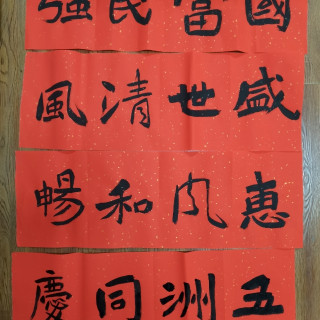 國富民强
盛世清風
惠风和暢
五洲同慶